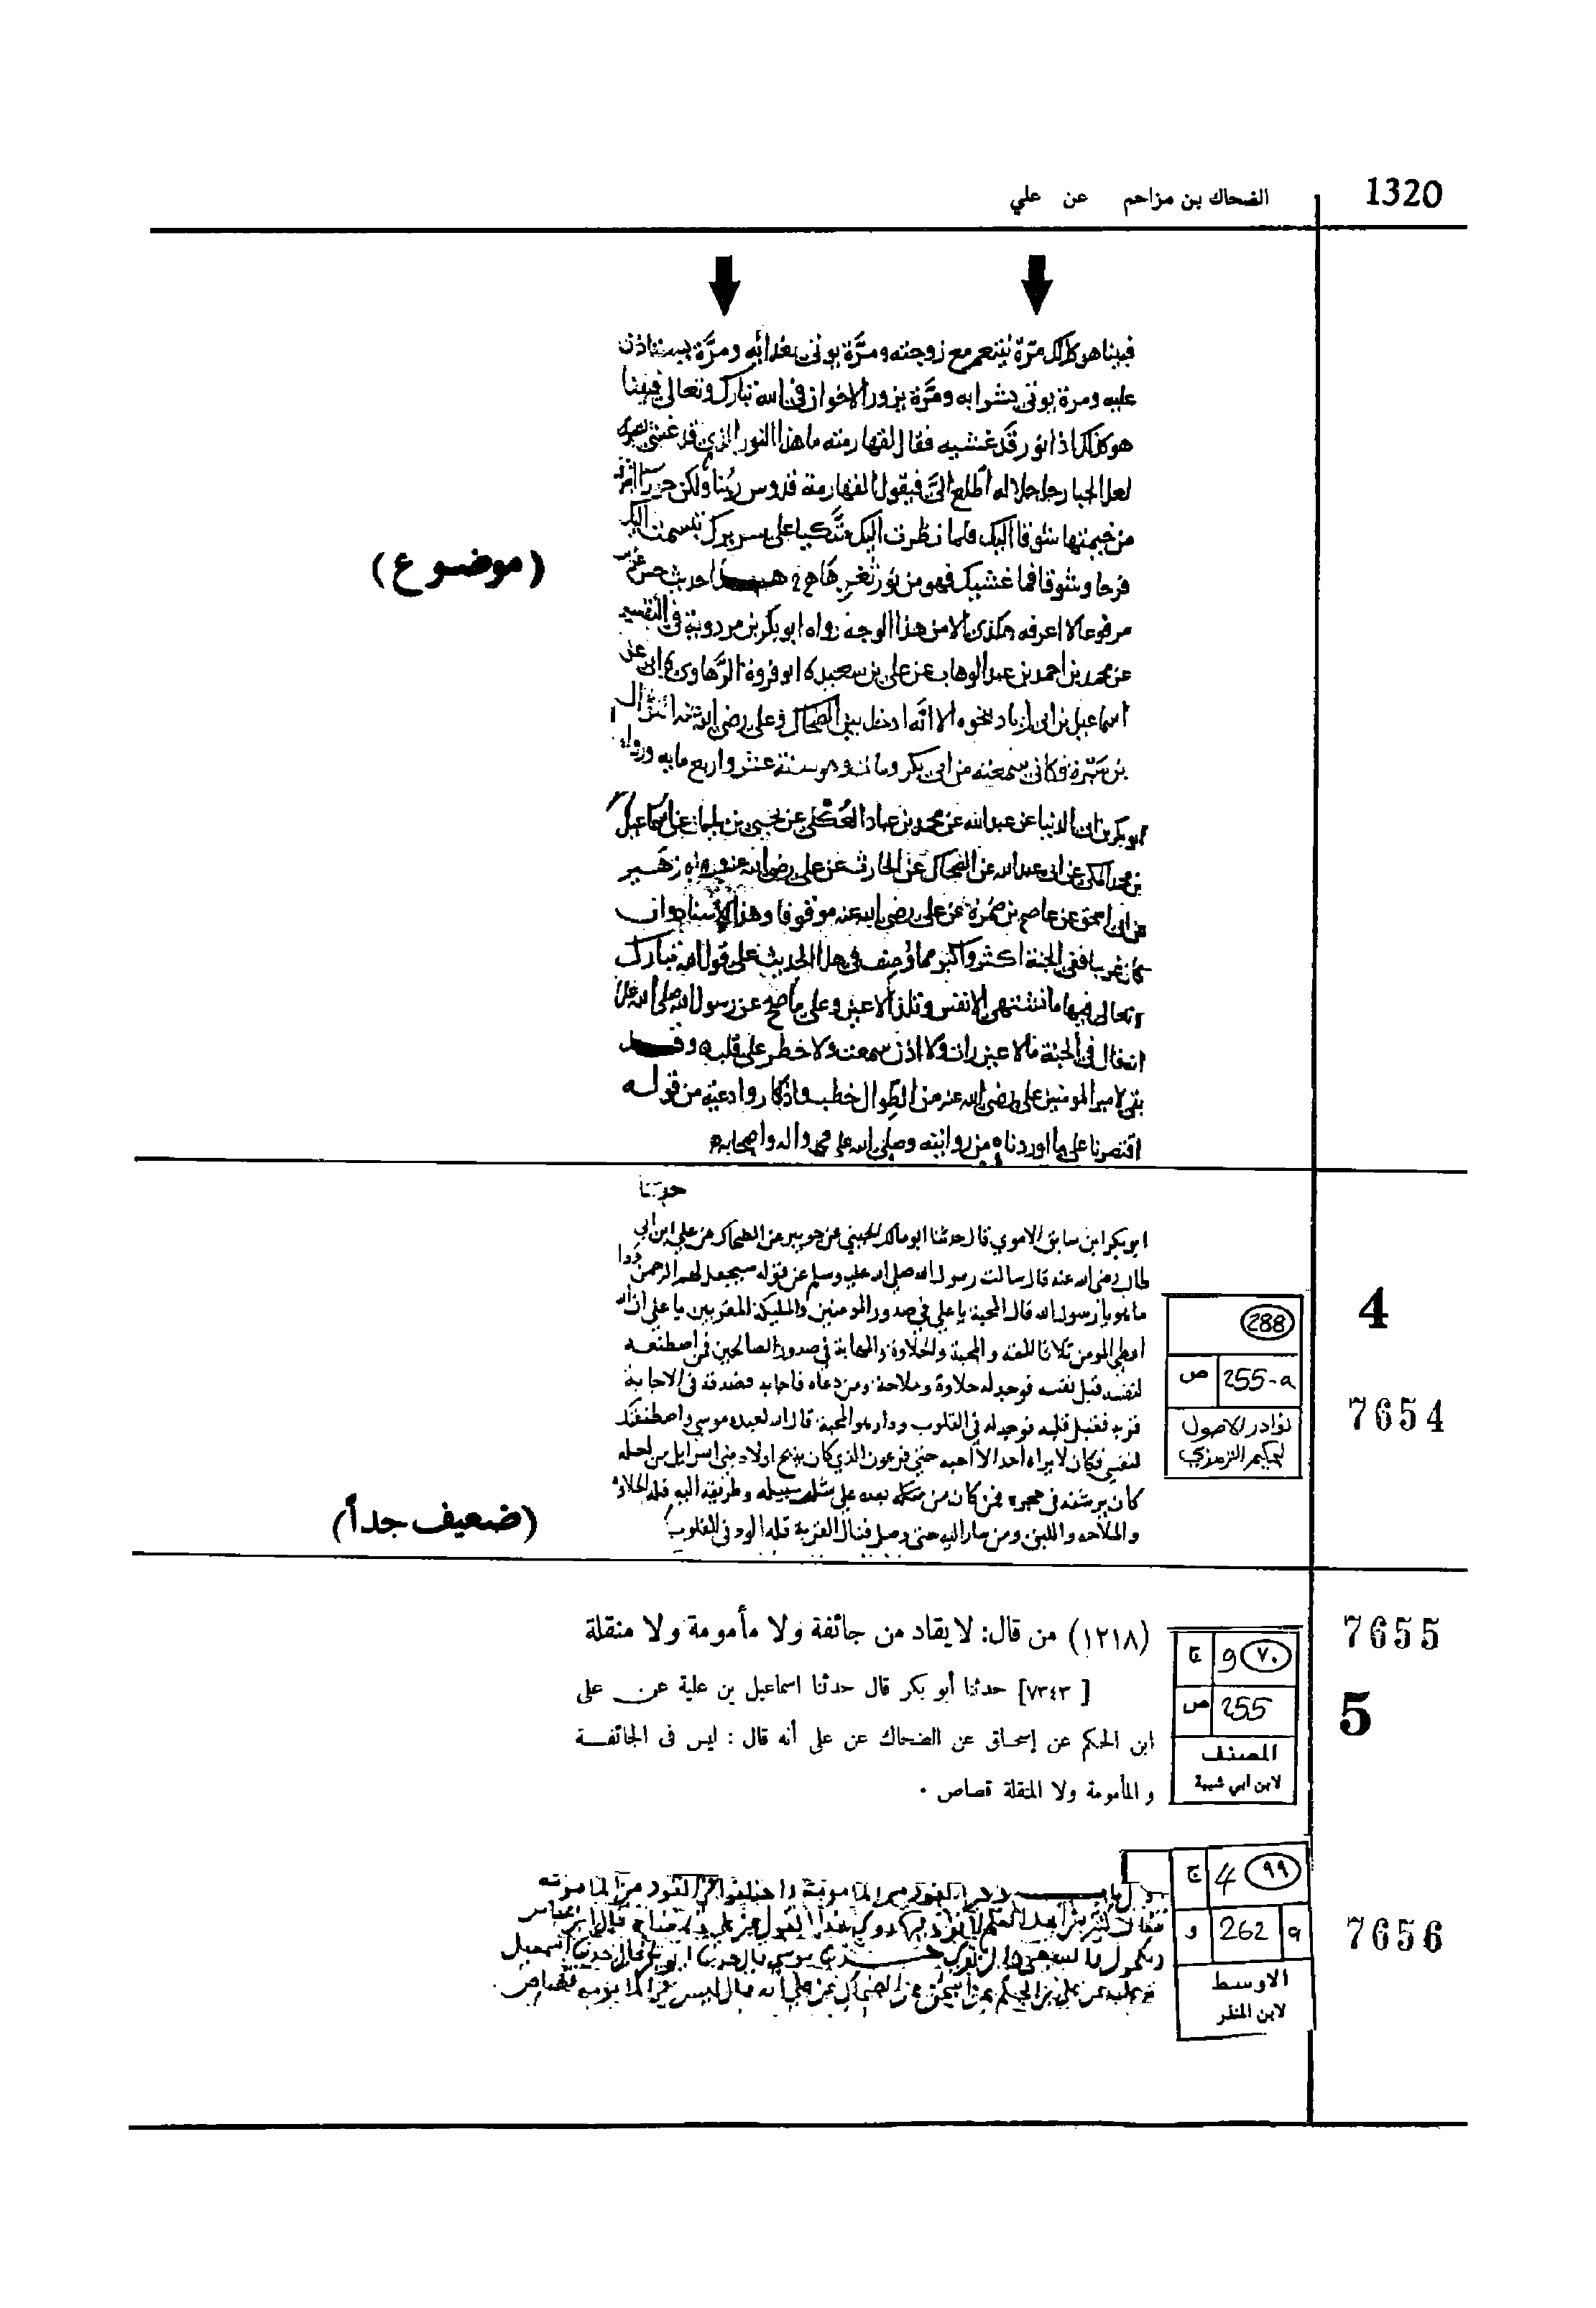 1320
الضحاك بن مزاحم عن علي
فبينا هو كذلك مرّة يتنعم مع زوجته ومرّة يوتى بغدائه ومرّة يستاذن
عليه ومرة يوتى بشرابه ومرّة يزور الاخوان في الله تبارك وتعالى فبينا
هو كذلك اذا نور قد غشيه فقال لقهارمته ما هذا النور الذي قد غشى
لعل الجبار جل جلاله اطلع اليّ فيقول القهارمة قدوس ربنا ولكن حورا
من خيمتها شوقا اليك فلما نظرت اليك متكيا على سريرك تبسمت اليك
فرحا وشوقا فما غشيك فهو من نور ثغرها هذا حديث حسن غريب
(موضوع)
مرفوعا لا اعرفه هكذى الا من هذا الوجه رواه ابو بكر بن مردوية في التفسير
عن محمد بن احمد بن عبد الوهاب عن علي بن سعيد ابو فروة الرهاوي عن
اسماعيل بن ابي زياد نحوه الا انه ادخل بين الضحاك وعلي رضي الله عنه النزال
بن سبرة فكاني سمعته من ابي بكر ومات وهو سنة عشر واربع مايه ورواه
ابو بكر بن ابي الدنيا عن عبد الله عن محمد بن عباد العكلي عن يحيى بن سليمان عن اسماعيل
بن محمد المكي عن ابي عبد الله عن الضحاك عن الحارث عن علي رضي الله عنه ورواه زهير
عن ابي اسحق عن عاصم بن ضمرة عن علي رضي الله عنه موقوفا وهذا الاسناد وان
كان غريبا ففي الجنة اكثر واكبر مما وصف في هذا الحديث على قول الله تبارك
وتعالى فيها ما تشتهي الانفس وتلذ الاعين وعلى ما صح عن رسول الله صلى الله عليه
انه قال في الجنة مالا عين رات ولا اذن سمعت ولا خطر على قلب وقد
بقي لامير المومنين علي رضي الله عنه من الطوال خطب واذكار وادعية من قوله
اقتصرنا على ما اوردناه من روايته وصلى الله على محمد واله واصحابه
حدثنا
ابو بكر ابن سابق الاموي قال حدثنا ابو مالك الجنبي عن جويبر عن الضحاك عن علي ابن ابي
طالب رضي الله عنه قال سالت رسول الله صلى الله عليه وسلم عن قوله سيجعل لهم الرحمن ودا
ما هو يا رسول الله قال المحبة يا علي في صدور المومنين والمليكة المقربين يا علي ان الله
اعطى المومن ثلاثا المقة والمحبة والحلاوة والمهابة في صدور الصالحين فمن اصطنعه
لنفسه قبل نفسه فوجد له حلاوة وملاحة ومن دعاه فاجابه فصدقه في الاجابة
قربه فقبل قلبه فوجد له في القلوب ودا وهو المحبة قال الله لعبده موسى واصطنعتك
لنفسي فكان لا يراه احد الا احبه حتى فرعون الذي كان يذبح اولاد بني اسرايل من اجله
كان يرشفه في حجره فمن كان من بعده على مثل سبيله وطريقه اليه فله الحلاوة
والملاحه واللين ومن سار اليه حتى وصل فنال القربة فله الود في القلوب
(ضعيف جداً)
4
7654
288
ص 255-a
نوادر الاصول
لحكيم الترمذي
7655
5
(١٢١٨) من قال: لا يقاد من جائفة ولا مأمومة ولا منقلة
[٧٣٤٣] حدثنا أبو بكر قال حدثنا اسماعيل بن علية عن على
ابن الحكم عن إسحاق عن الضحاك عن على أنه قال : ليس فى الجائفة
و المأمومة ولا المنقلة قصاص .
ج 9 ٧٠
ص 255
المصنف
لابن ابي شيبة
7656
ج 4 ٩٩
و 262 a
الاوسط
لابن المنذر
بن علية عن علي بن الحكم عن اسحق عن الضحاك عن علي انه قال ليس في المامومة قصاص